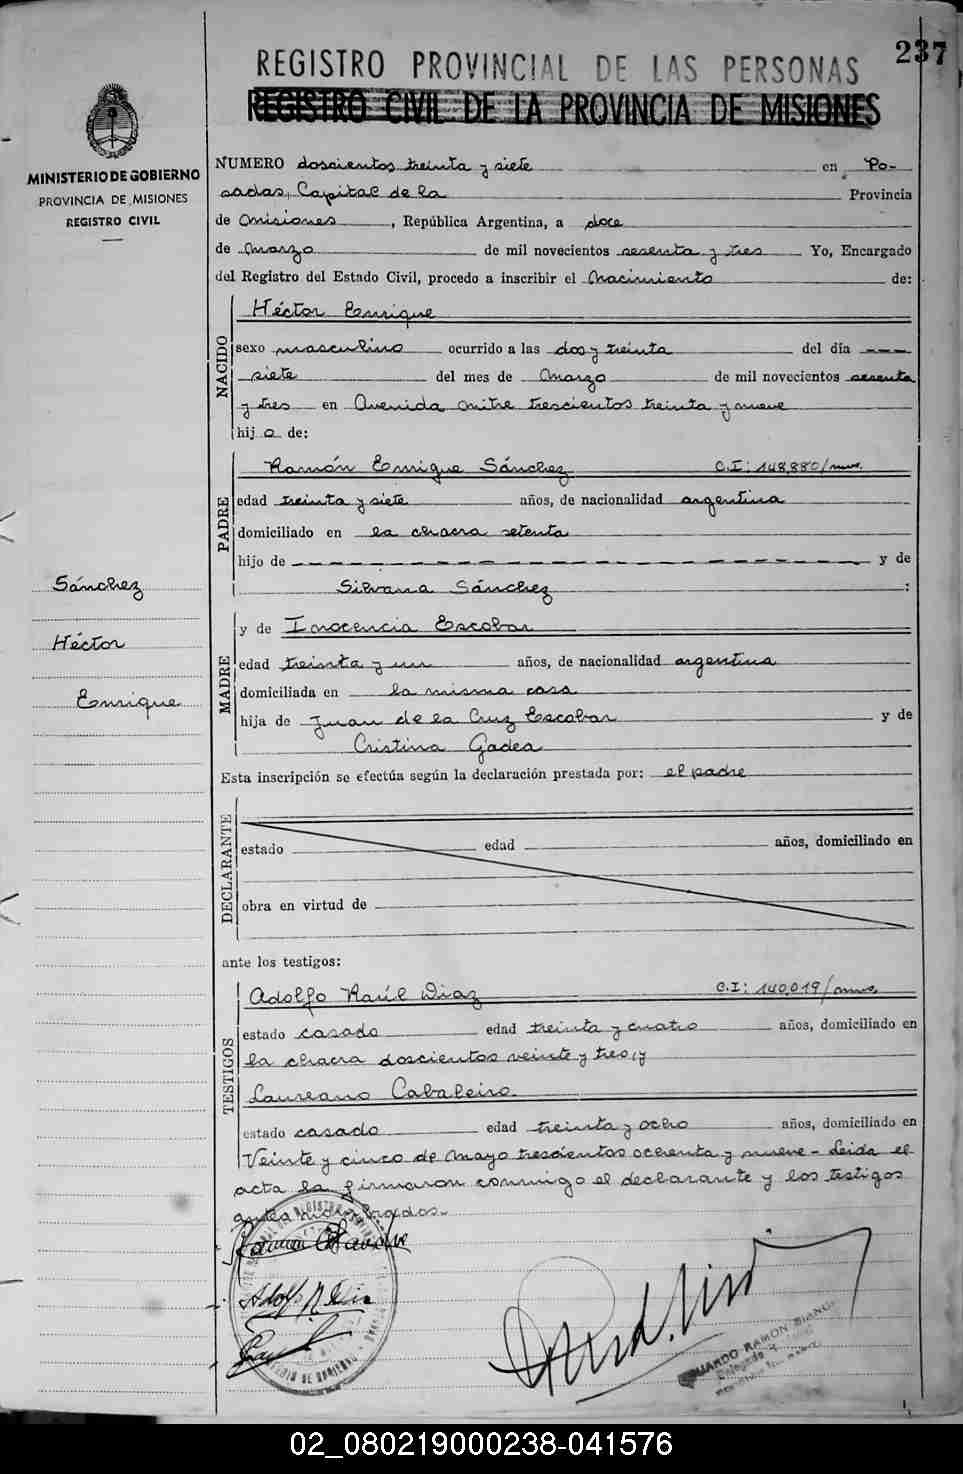 237
REGISTRO PROVINCIAL DE LAS PERSONAS
REGISTRO CIVIL DE LA PROVINCIA DE MISIONES
MINISTERIO DE GOBIERNO
PROVINCIA DE MISIONES
REGISTRO CIVIL
NUMERO doscientos treinta y siete en Po-
sadas, Capital de la Provincia
de Misiones, República Argentina, a doce
de Marzo de mil novecientos sesenta y tres Yo, Encargado
del Registro del Estado Civil, procedo a inscribir el Nacimiento de:
NACIDO
Héctor Enrique
sexo masculino ocurrido a las dos y treinta del día ---
siete del mes de Marzo de mil novecientos sesenta
y tres en Avenida Mitre trescientos treinta y nueve
hij o de:
PADRE
Ramón Enrique Sánchez C.I: 148,880/mnes.
edad treinta y siete años, de nacionalidad argentina
domiciliado en la chacra setenta
hijo de - - - - - - - - - - - - - - - - - - - y de
Silvana Sánchez :
Sánchez
Héctor
Enrique
MADRE
y de Inocencia Escobar
edad treinta y un años, de nacionalidad argentina
domiciliada en la misma casa
hija de Juan de la Cruz Escobar y de
Cristina Gadea
Esta inscripción se efectúa según la declaración prestada por: el padre
DECLARANTE
estado edad años, domiciliado en
obra en virtud de
ante los testigos:
TESTIGOS
Adolfo Raúl Diaz C.I: 140,019/mnes.
estado casado edad treinta y cuatro años, domiciliado en
la chacra doscientos veinte y tres, y
Laureano Cabaleiro.
estado casado edad treinta y ocho años, domiciliado en
Veinte y cinco de Mayo trescientos ochenta y nueve - Leida el
acta la firmaron conmigo el declarante y los testigos
antes nombrados.-
Adolfo R. Diaz
EDUARDO RAMON
02_080219000238-041576